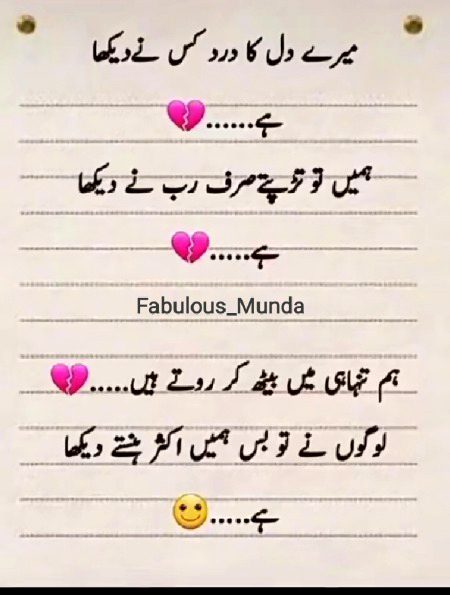 میرے دل کا درد کس نے دیکھا
ہے......💔
ہمیں تو تڑپتے صرف رب نے دیکھا
ہے.....💔
Fabulous_Munda
ہم تنہاہی میں بیٹھ کر روتے ہیں.....💔
لوگوں نے تو بس ہمیں اکثر ہنستے دیکھا
ہے.....🙂